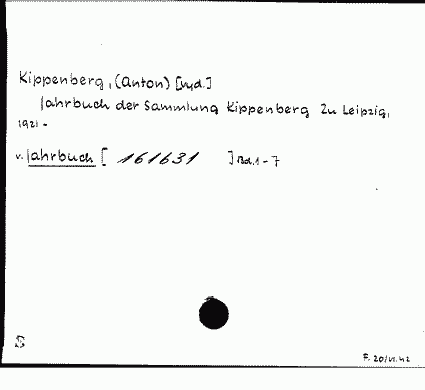 Kippenberg, (Anton) [vyd.]
Jahrbuch der Sammlung Kippenberg Zu Leipzig,
1921 -
v. Jahrbuch [ 161631 ] Bd. 1-7
F. 20/VI. 42